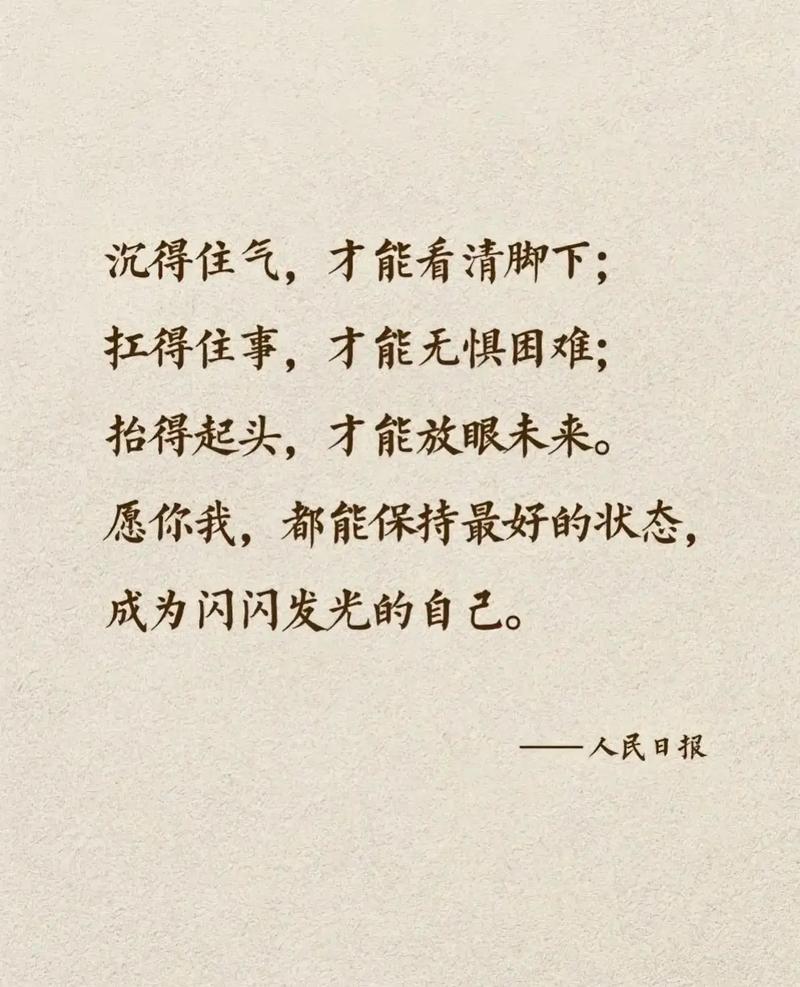 沉得住气，才能看清脚下；
扛得住事，才能无惧困难；
抬得起头，才能放眼未来。
愿你我，都能保持最好的状态，
成为闪闪发光的自己。
——人民日报